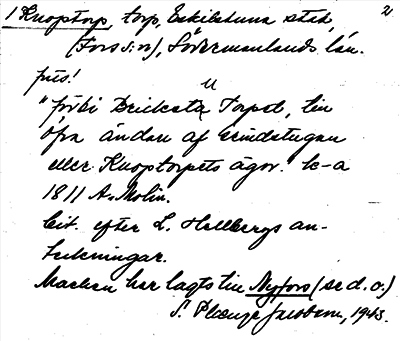 2
1 Knoptorp, torp, Eskilstuna stad,
(Fors sn), Södermanlands län.
"förbi Torpet, till
öfra ändan af
eller Knoptorpets ägor. k-a
1811 A. Molin.
Cit. efter L. Hellbergs an-
teckningar.
Marken har lagts till Nyfors (se d.o.)
S. Plange Jacobson, 1943.